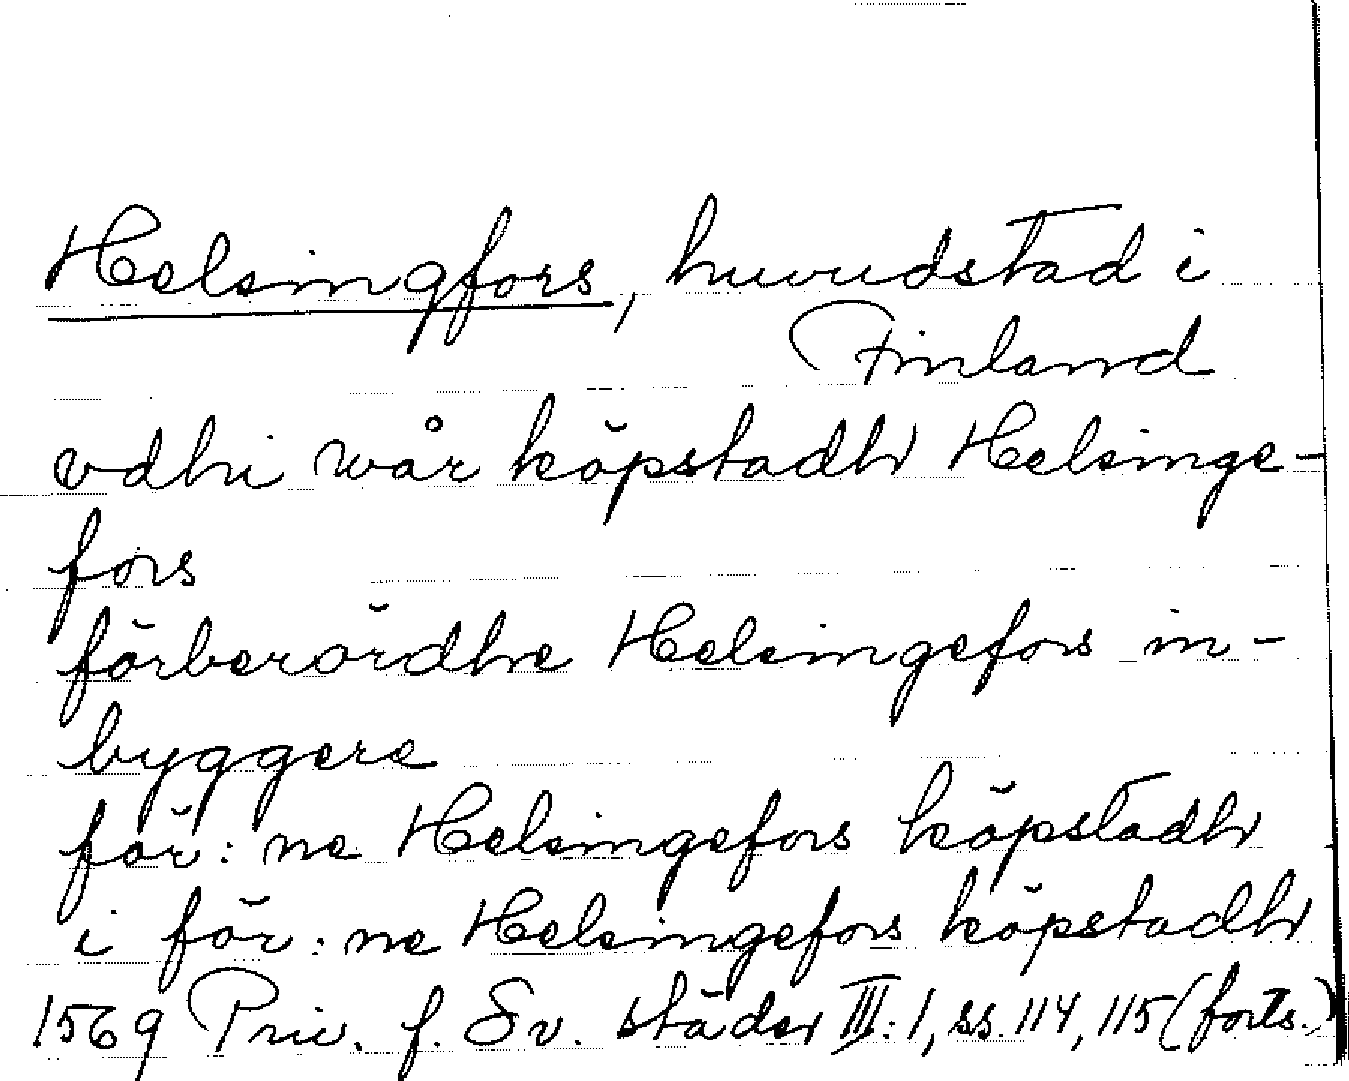 Helsingfors, huvudstad i
Finland
vdhi wår köpstadh Helsinge-
fors
förberördhe Helsingefors in-
byggere
för:ne Helsingefors köpstadh
i för:ne Helsingefors köpstadh
1569 Priv. f. Sv. städer III:1, ss. 114, 115 (forts.)